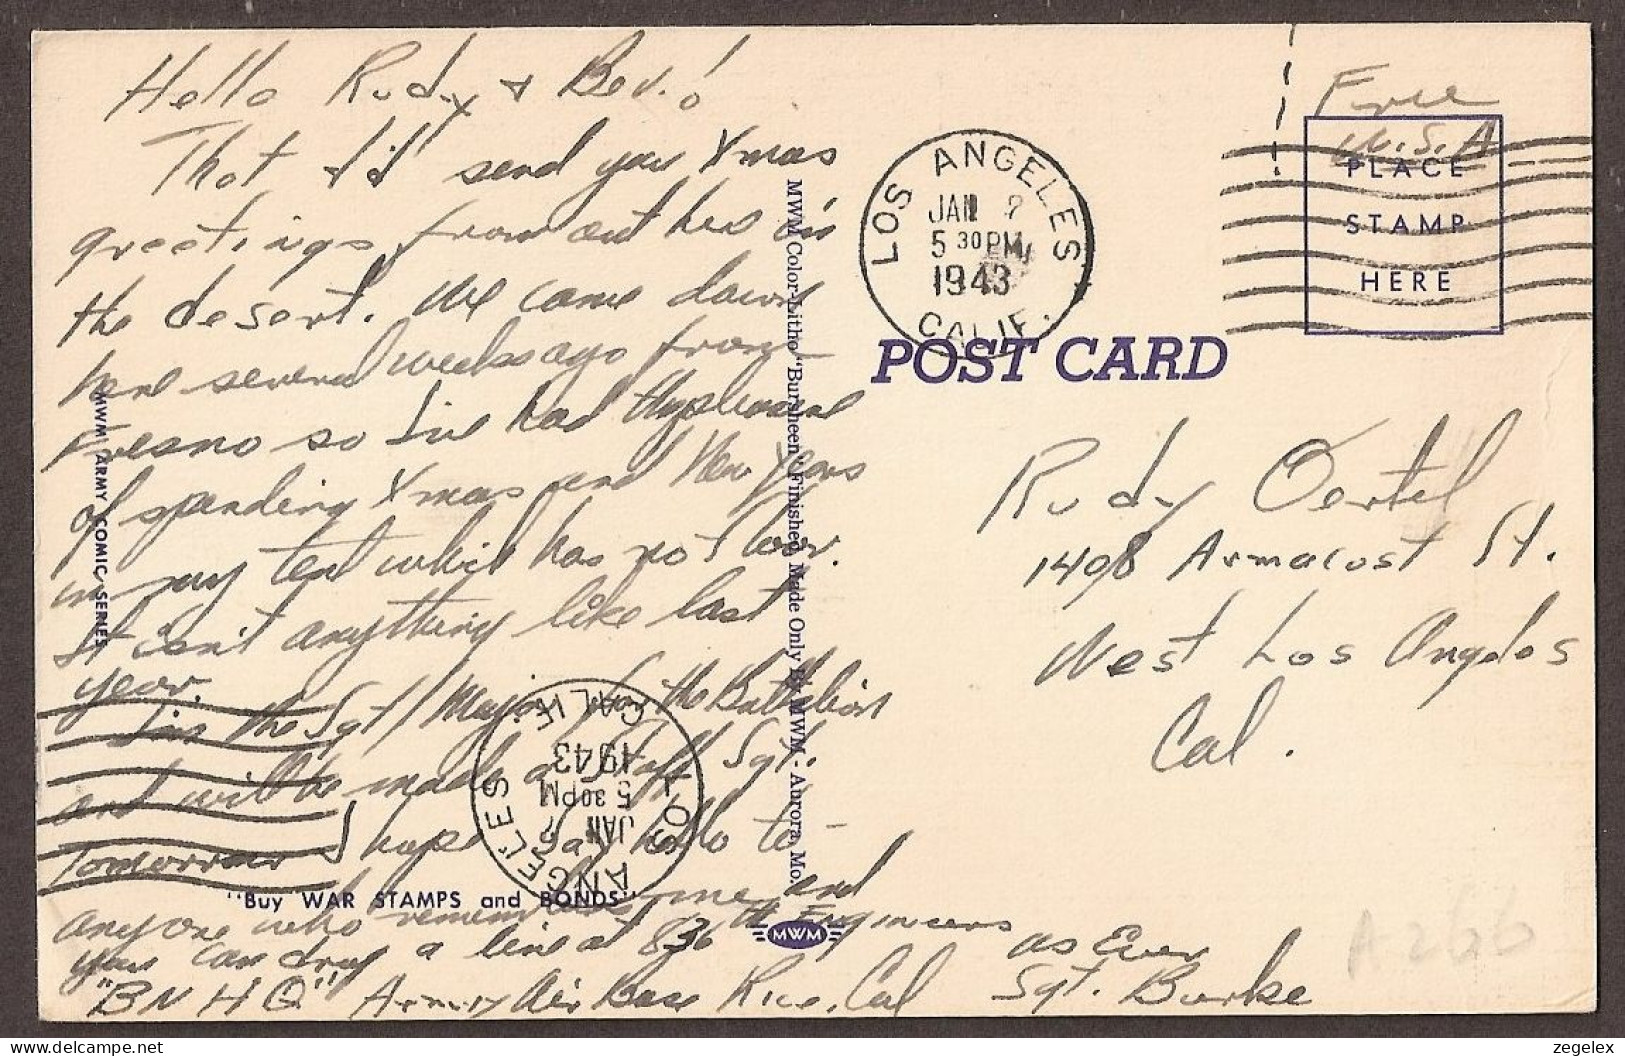 Hello Rudy & Bev.!
That I'd send you Xmas
greetings from out here in
the desert. We came down
here several weeks ago from
Fresno so I've had the pleasure
of spending Xmas and New Years
in my tent which has no floor.
It isn't anything like last
year.
I'm the Sgt/Major for the Battalion
and will be made a Staff Sgt.
Tomorrow I hope. Say hello to
anyone who remembers me and
you can drop a line at 836th Engineers
"BN HQ" Army Air Base Rice, Cal
as Ever
Sgt. Burke
MWM ARMY COMIC SERIES
"Buy WAR STAMPS and BONDS"
MWM
MWM Color-Litho "Bursheen" Finished Made Only By MWM - Aurora, Mo.
LOS ANGELES
JAN
5 30 PM
1943
CALIF.
Free
U.S.A
PLACE
STAMP
HERE
POST CARD
Rudy Oertel
1408 Armacost St.
West Los Angeles
Cal.
LOS ANGELES
JAN
5 30 PM
1943
CALIF
zegelex